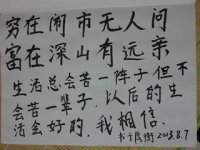 穷在闹市无人问
富在深山有远亲
生活总会苦一阵子但不
会苦一辈子.以后的生
活会好的.我相信.
2018.8.7